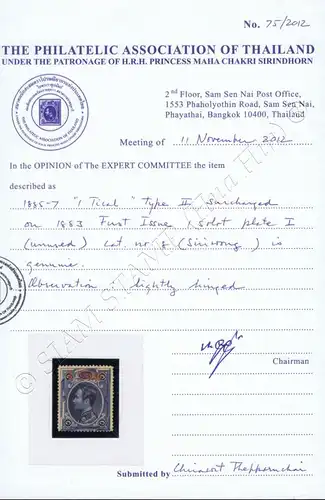 No. 75/2012
THE PHILATELIC ASSOCIATION OF THAILAND
UNDER THE PATRONAGE OF H.R.H. PRINCESS MAHA CHAKRI SIRINDHORN
2nd Floor, Sam Sen Nai Post Office,
1553 Phaholyothin Road, Sam Sen Nai,
Phayathai, Bangkok 10400, Thailand
Meeting of 11 November 2012
In the OPINION of The EXPERT COMMITTEE the item
described as
1885-7 "1 Tical" Type II Surcharged
on 1883 First Issue 1 solot plate I
(unused) cat. no 8 (Siriwong) is
genuine.
Observation : lightly hinged
Chairman
Submitted by